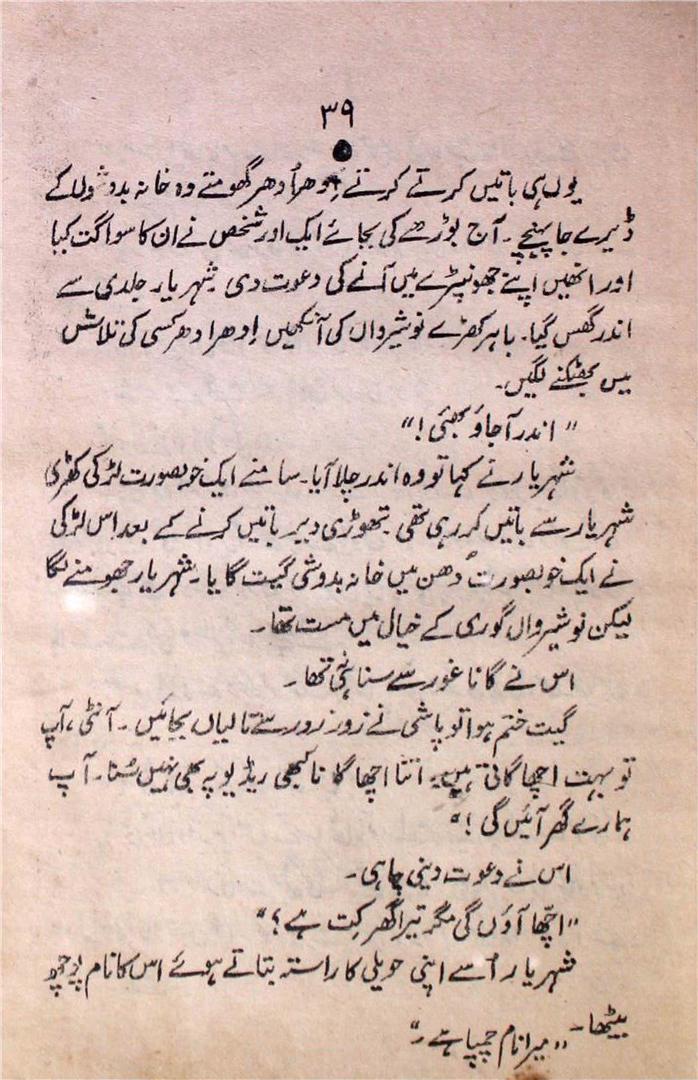 ۳۹
یوں ہی باتیں کرتے کرتے اِدھر اُدھر گھومتے وہ خانہ بدوشوں کے
ڈیرے جا پہنچے۔ آج بوڑھے کی بجائے ایک اور شخص نے ان کا سواگت کیا
اور انھیں اپنے جھونپڑے میں آنے کی دعوت دی شہریار جلدی سے
اندر گھس گیا۔ باہر کھڑے نوشیرواں کی آنکھیں اِدھر ادھر کسی کی تلاش
میں بھٹکنے لگیں۔
"اندر آجاؤ بھئی!"
شہریار نے کہا تو وہ اندر چلا آیا۔ سامنے ایک خوبصورت لڑکی کھڑی
شہریار سے باتیں کر رہی تھی۔ تھوڑی دیر باتیں کرنے کے بعد اس لڑکی
نے ایک خوبصورت دُھن میں خانہ بدوشی گیت گایا۔ شہریار جھومنے لگا
لیکن نوشیرواں گوری کے خیال میں مست تھا۔
اس نے گانا غور سے سنا ہی تھا۔
گیت ختم ہوا تو پاشی نے زور زور سے تالیاں بجائیں۔ آنٹی، آپ
تو بہت اچھا گاتی ہیں۔ اتنا اچھا گانا کبھی ریڈیو پہ بھی نہیں سُنا۔ آپ
ہمارے گھر آئیں گی!"
اس نے دعوت دینی چاہی۔
"اچھا آؤں گی مگر تیرا گھر کِت ہے؟"
شہریار اُسے اپنی حویلی کا راستہ بتاتے ہوئے اس کا نام پوچھ
بیٹھا۔ "میرا نام چمپا ہے۔"